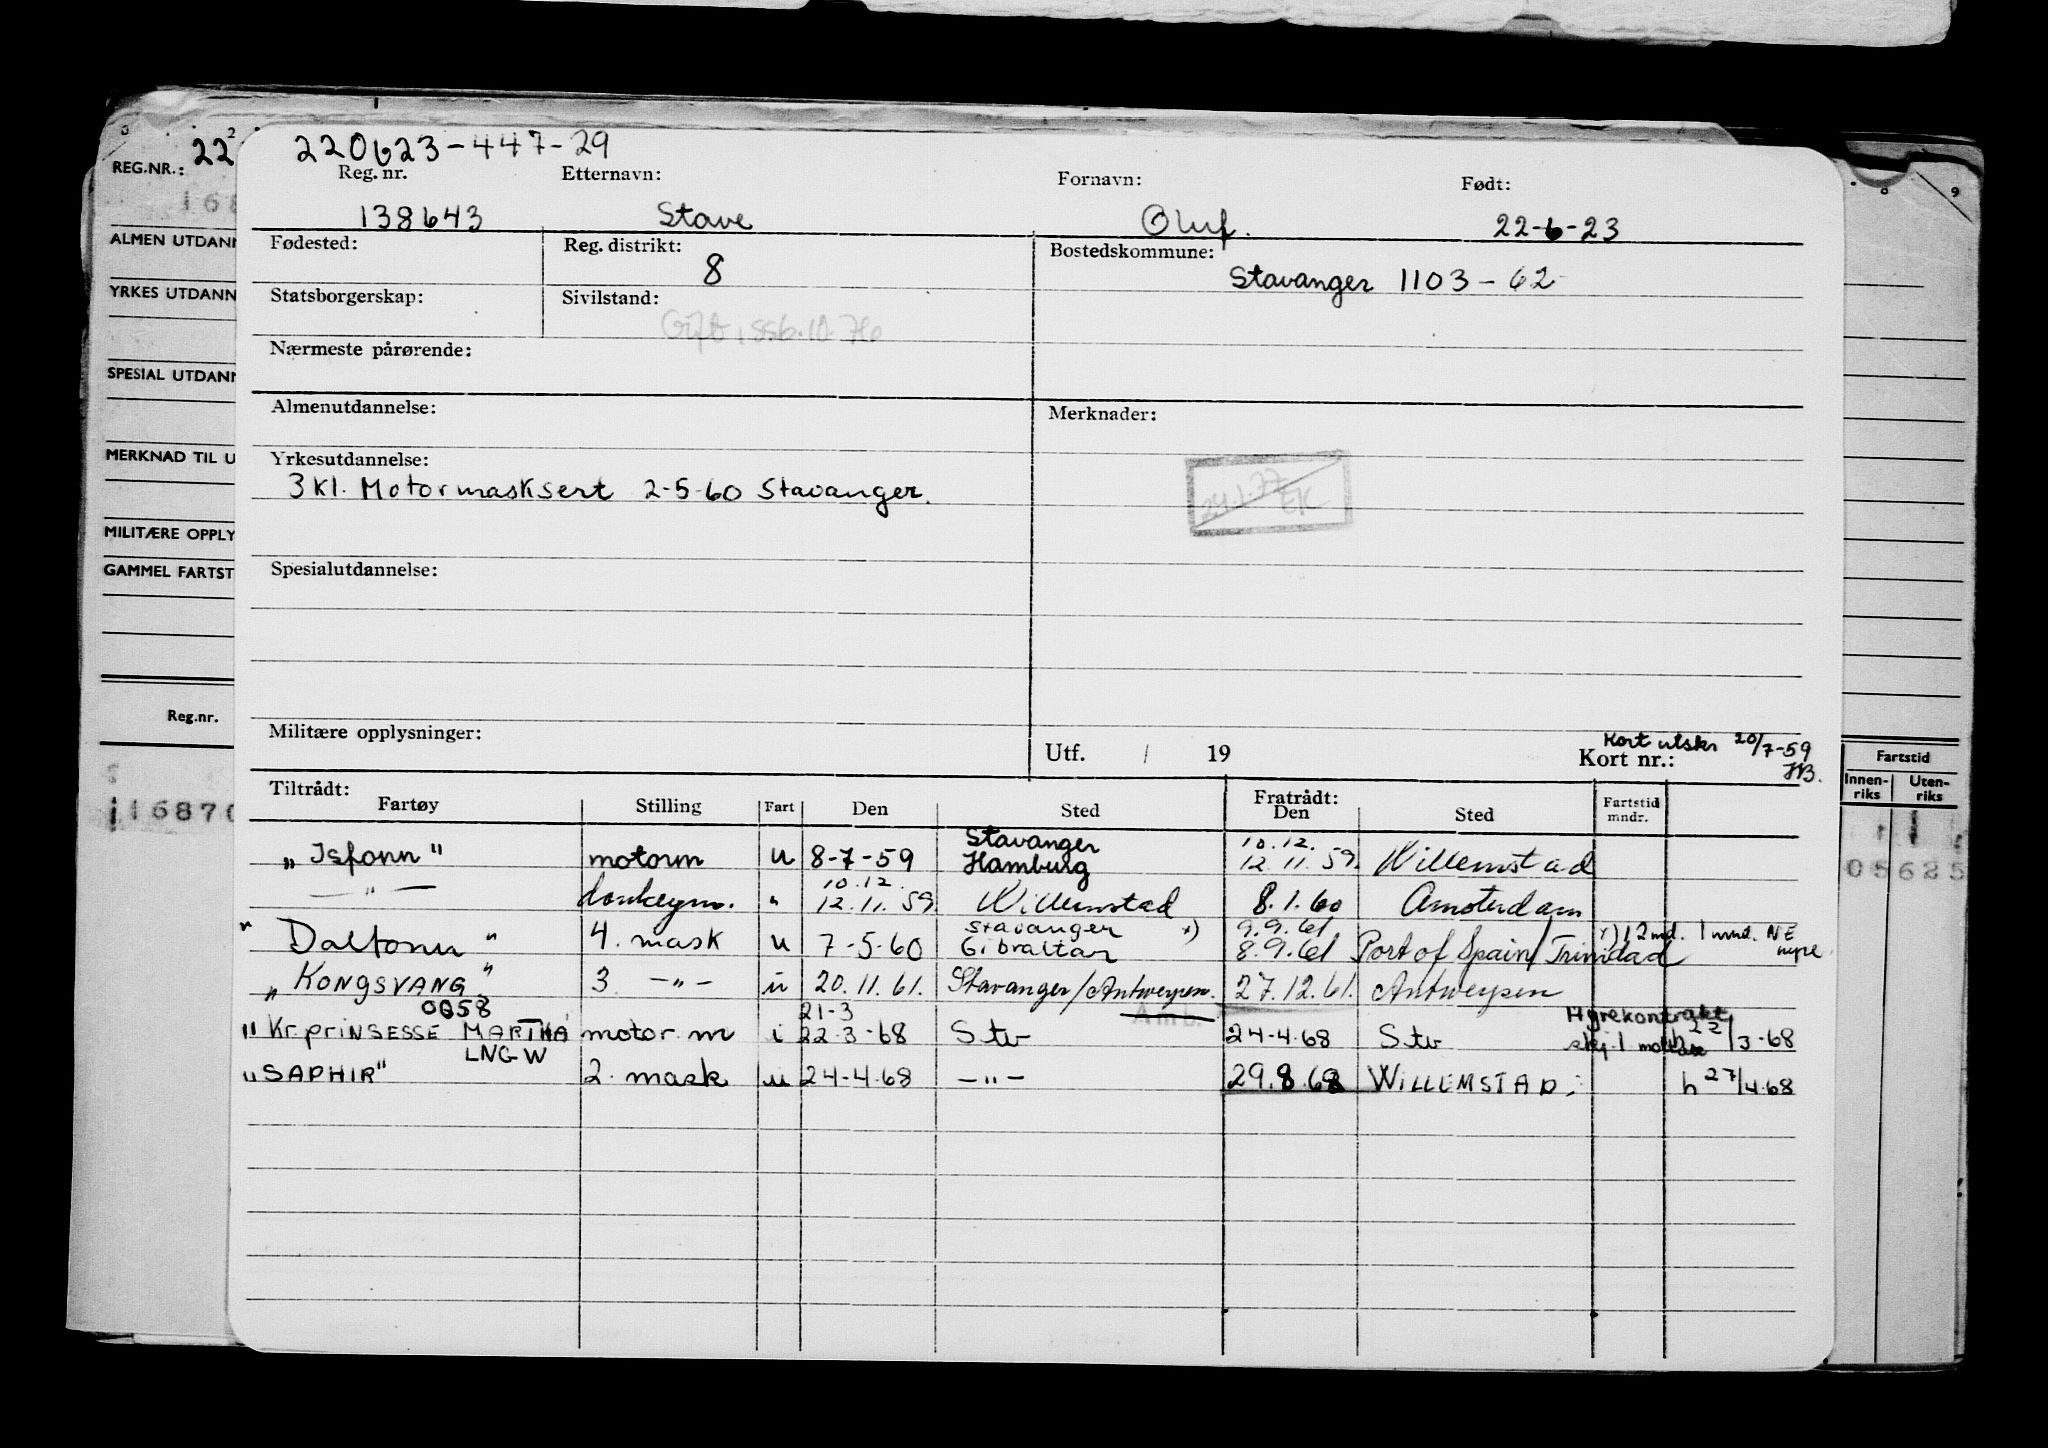 220623-447-29
REG.NR.: 22
Reg. nr. Etternavn: Fornavn: Født:
138643 Stave Oluf. 22-6-23
ALMEN UTDANN
Fødested: Reg. distrikt: Bostedskommune:
8 Stavanger 1103-62
YRKES UTDANN
Statsborgerskap: Sivilstand:
Gift
Nærmeste pårørende:
SPESIAL UTDANN
Almenutdannelse: Merknader:
MERKNAD TIL U
Yrkesutdannelse:
3 kl. Motormasksert 2-5-60 Stavanger.
24.1.77 EK
MILITÆRE OPPLY
GAMMEL FARTST
Spesialutdannelse:
Reg.nr.
Militære opplysninger: Utf. / 19
Kort utskr 20/7-59
Kort nr.: HB.
Fartstid
Innen-riks Uten-riks
Tiltrådt: Fratrådt:
Fartøy Stilling Fart Den Sted Den Sted Fartstid mndr.
11687 05625
Stavanger 10.12.
"Isfonn" motorm u 8-7-59 Hamburg 12.11.59. Willemstad
10.12.
—"— donkeym. " 12.11.59. Willemstad 8.1.60 Amsterdam
Stavanger x) 9.9.61 x) 12 md. 1 mnd. NE
"Dalfonn" 4. mask u 7-5-60 Gibraltar 8.9.61 Port of Spain/Trinidad
"KONGSVANG" 3 —"— u 20.11.61. Stavanger/Antwerpen. 27.12.61. Antwerpen
0058 21-3 Amb. Hyrekontrakt
"Kr.prinsesse MARTHA motor m i 22.3-68 Stv 24-4-68 Stv h 22/3-68
LNGW
"SAPHIR" 2. mask u 24-4-68 —"— 29.8.68 WILLEMSTAD h 27/4.68